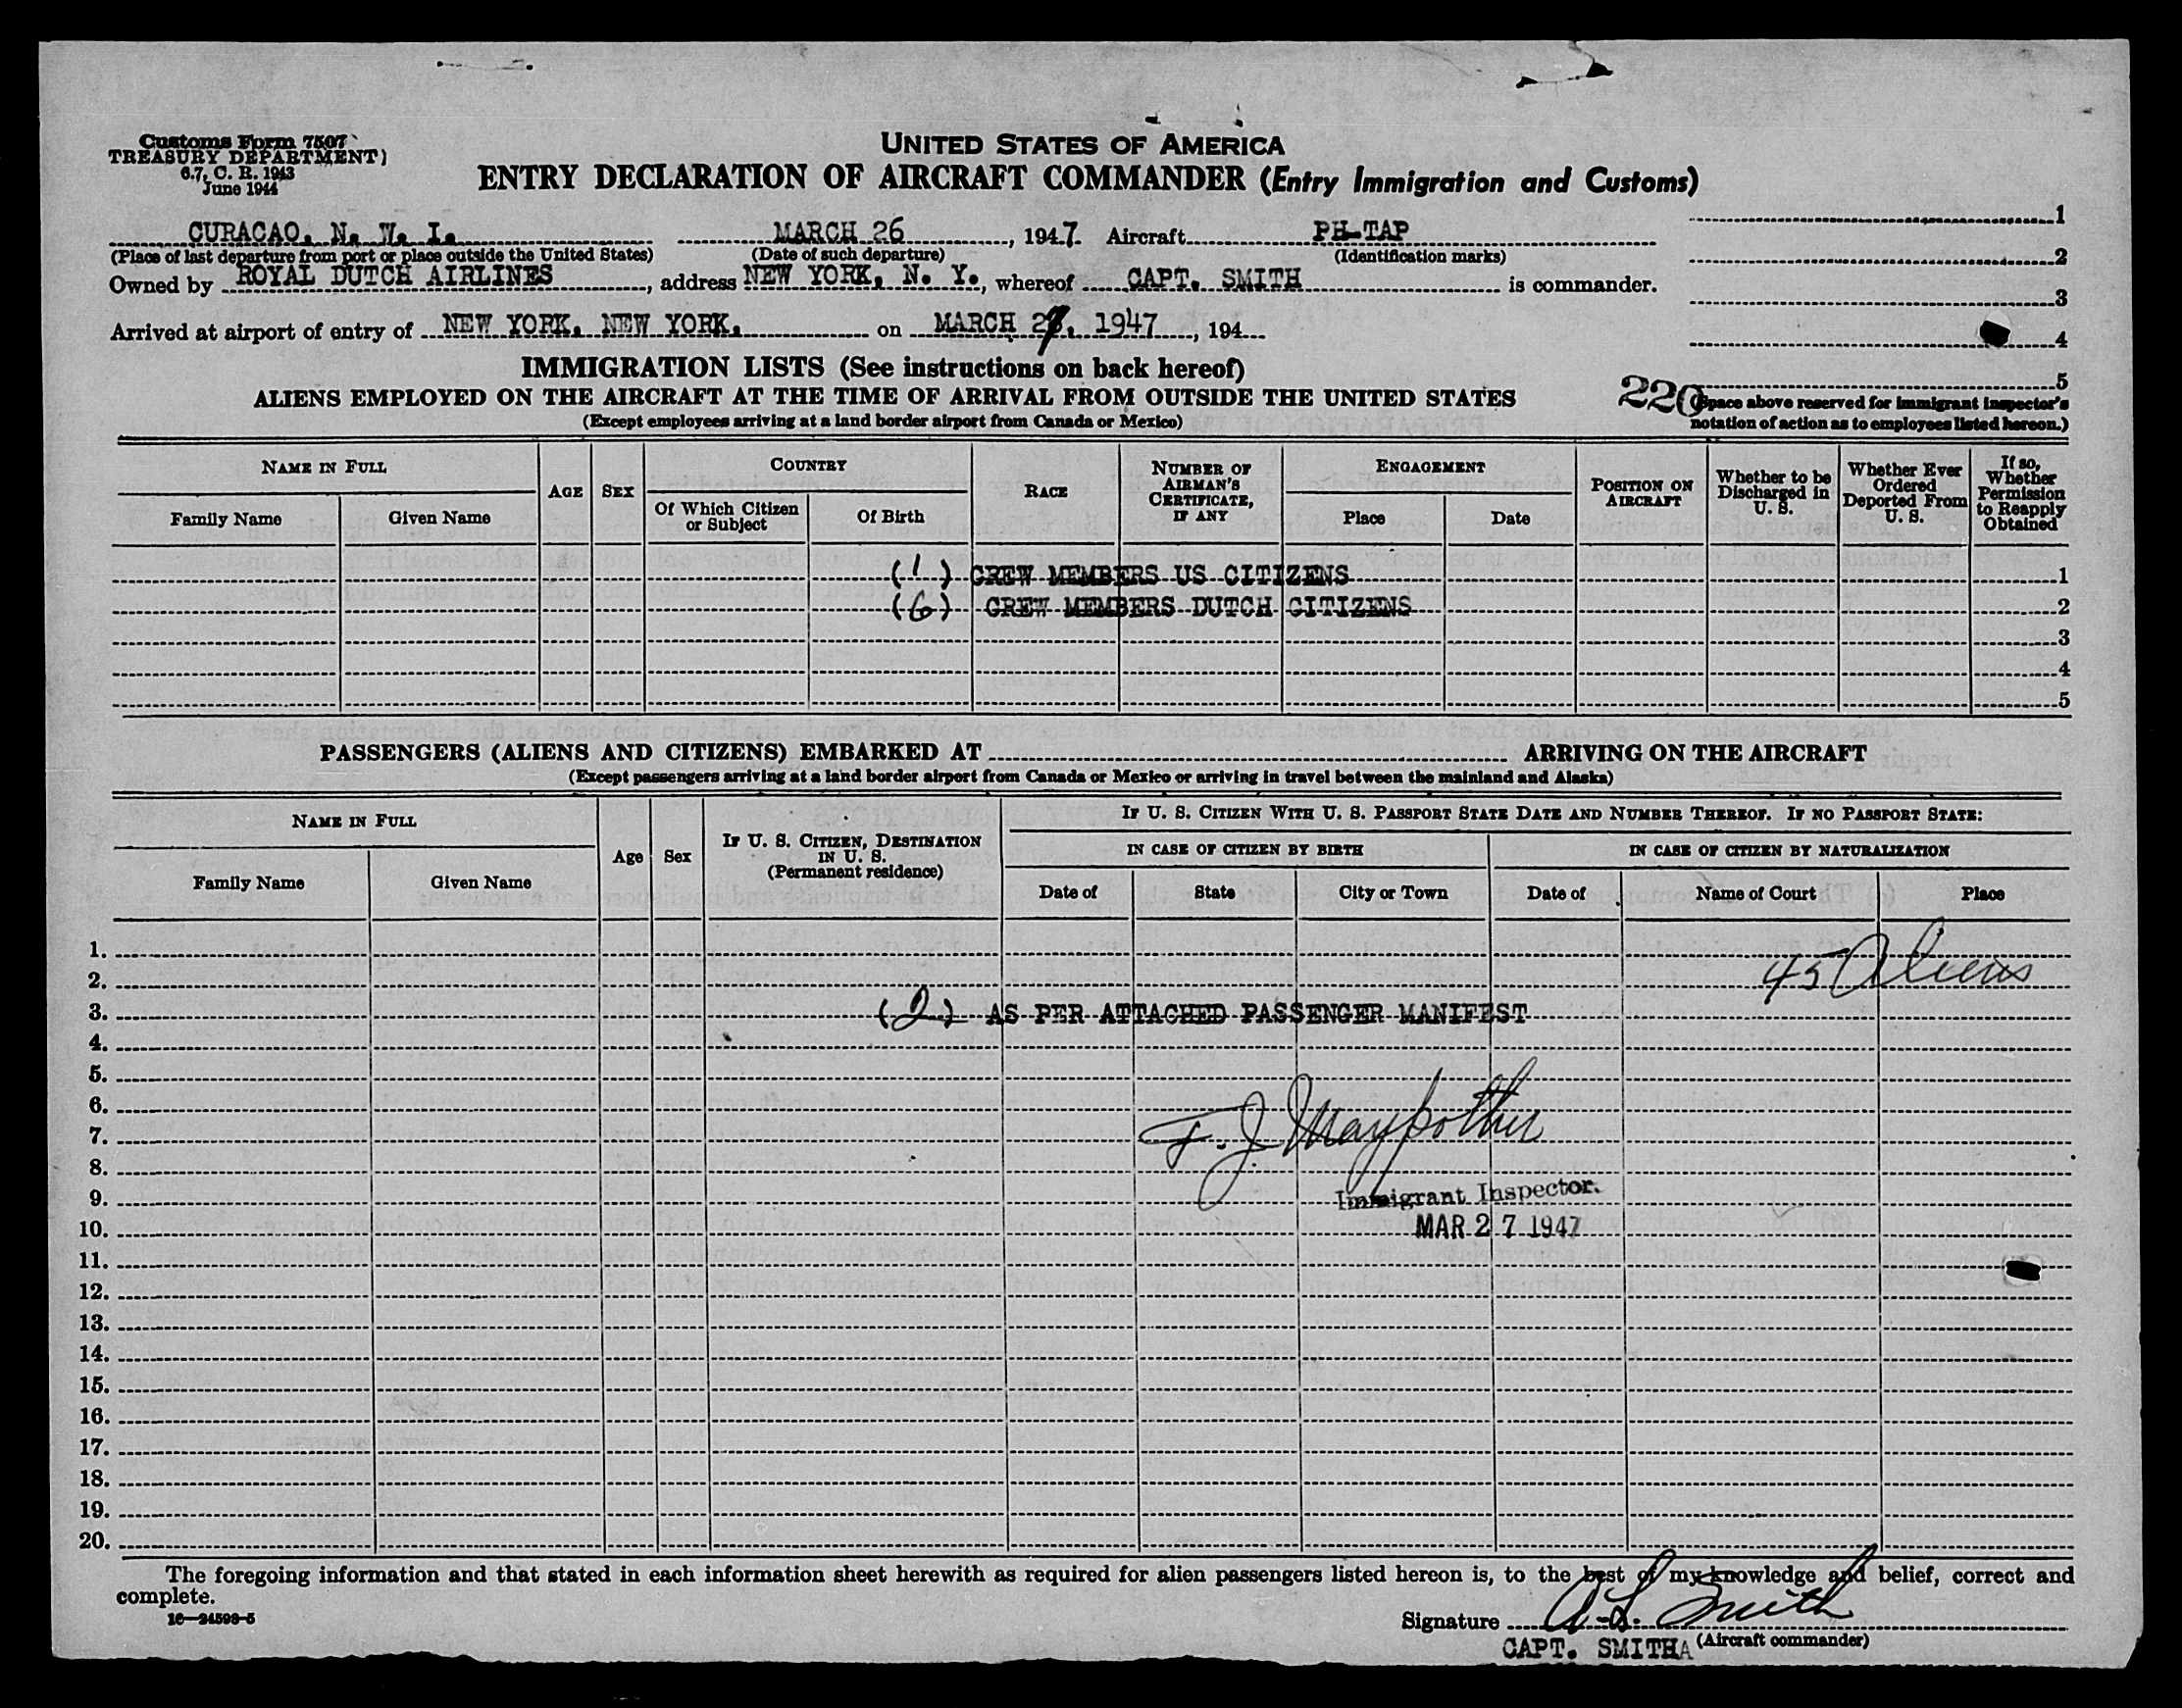 Customs Form 7507
TREASURY DEPARTMENT)
6.7, C. R. 1943
June 1944
UNITED STATES OF AMERICA
ENTRY DECLARATION OF AIRCRAFT COMMANDER (Entry Immigration and Customs)
CURACAO, N. W. I. MARCH 26, 1947. Aircraft PH-TAP
(Place of last departure from port or place outside the United States) (Date of such departure) (Identification marks)
Owned by ROYAL DUTCH AIRLINES, address NEW YORK, N. Y., whereof CAPT. SMITH is commander.
Arrived at airport of entry of NEW YORK, NEW YORK. on MARCH 27, 1947, 194
1
2
3
4
5
220
(Space above reserved for immigrant inspector's
notation of action as to employees listed hereon.)
IMMIGRATION LISTS (See instructions on back hereof)
ALIENS EMPLOYED ON THE AIRCRAFT AT THE TIME OF ARRIVAL FROM OUTSIDE THE UNITED STATES
(Except employees arriving at a land border airport from Canada or Mexico)
NAME IN FULL
Family Name
Given Name
AGE
SEX
COUNTRY
Of Which Citizen
or Subject
Of Birth
RACE
NUMBER OF
AIRMAN'S
CERTIFICATE,
IF ANY
ENGAGEMENT
Place
Date
POSITION ON
AIRCRAFT
Whether to be
Discharged in
U. S.
Whether Ever
Ordered
Deported From
U. S.
If so,
Whether
Permission
to Reapply
Obtained
(1) CREW MEMBERS US CITIZENS 1
(6) CREW MEMBERS DUTCH CITIZENS 2
3
4
5
PASSENGERS (ALIENS AND CITIZENS) EMBARKED AT ARRIVING ON THE AIRCRAFT
(Except passengers arriving at a land border airport from Canada or Mexico or arriving in travel between the mainland and Alaska)
NAME IN FULL
Family Name
Given Name
Age
Sex
IF U. S. CITIZEN, DESTINATION
IN U. S.
(Permanent residence)
IF U. S. CITIZEN WITH U. S. PASSPORT STATE DATE AND NUMBER THEREOF. IF NO PASSPORT STATE:
IN CASE OF CITIZEN BY BIRTH
Date of
State
City or Town
IN CASE OF CITIZEN BY NATURALIZATION
Date of
Name of Court
Place
1.
2. 45 Aliens
3. (2) AS PER ATTACHED PASSENGER MANIFEST
4.
5.
6.
7. F. J. Maypother
8.
9. Immigrant Inspector.
10. MAR 27 1947
11.
12.
13.
14.
15.
16.
17.
18.
19.
20.
The foregoing information and that stated in each information sheet herewith as required for alien passengers listed hereon is, to the best of my knowledge and belief, correct and
complete.
16—24598-5
Signature A. L. Smith
CAPT. SMITHA (Aircraft commander)